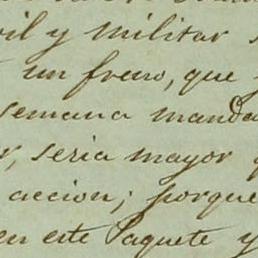 vil y militar
un freno, que
semana manda
r, seria mayor
accion; porque
en este Paquete y